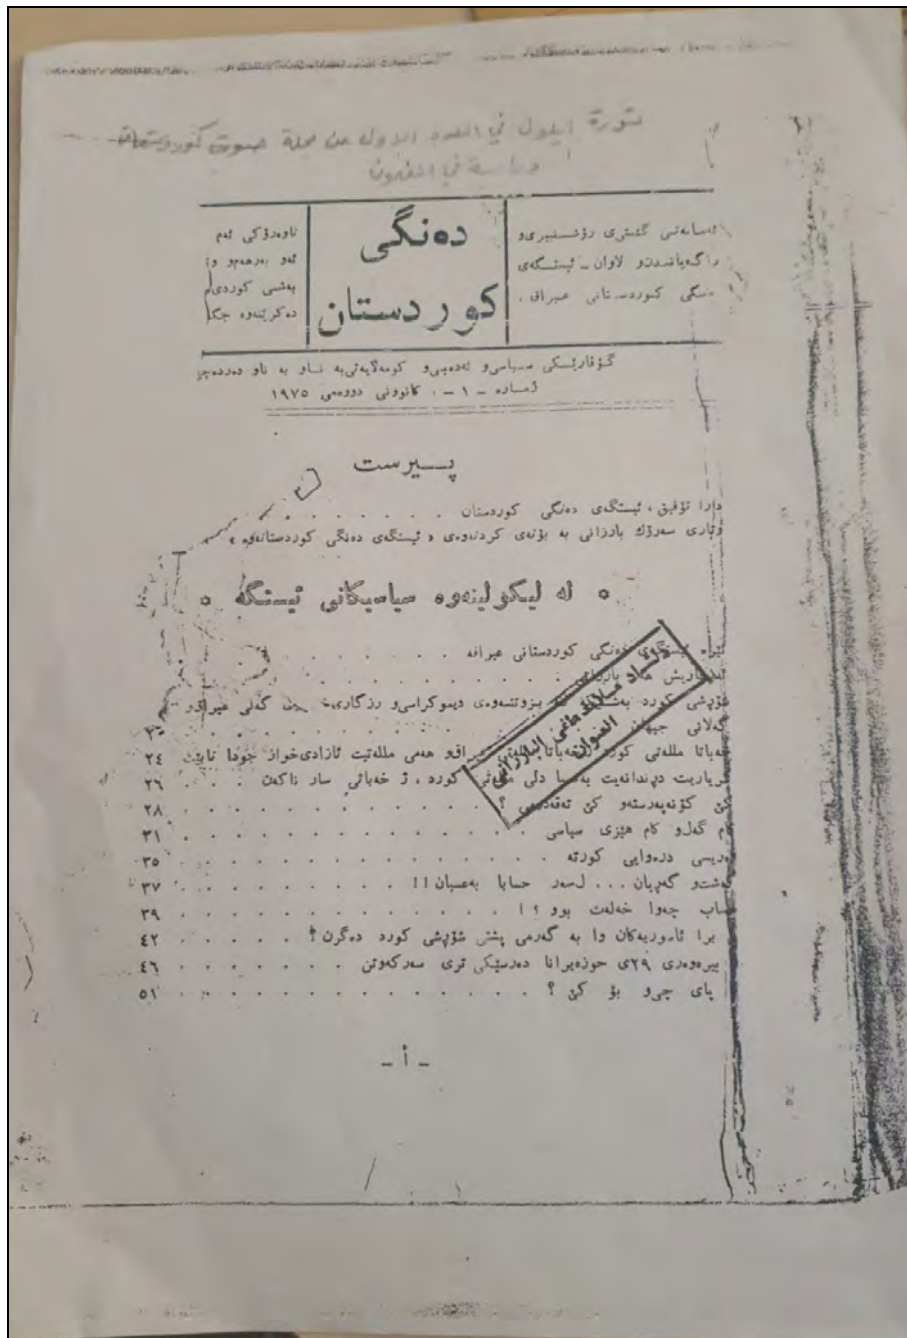 ثورة ايلول في العدد الاول من مجلة صوت كوردستان
دراسة في المضمون
دەنگی
کوردستان
ئەمانەتی گشتی رۆشنبیری و
راگەیاندن و لاوان ـ ئیستگەی
دەنگی کوردستانی عیراق .
ناوەرۆکی ئەم
ئەو بەرهەمو و
بەشی کوردی
دەکرێنەوە جگە
گۆڤارێکی سیاسی و ئەدەبی و کۆمەڵایەتی یە ناو بە ناو دەردەچێ
ژمارە ـ ١ ـ ٠ کانوونی دووەمی ١٩٧٥
پــیرست
دارا تۆفیق ، ئیستگەی دەنگی کوردستان . . . . . . .
وتاری سەرۆك بارزانی بە بۆنەی کردنەوەی « ئیستگەی دەنگی کوردستانەوە »
٥ لە لیکولینەوە سیاسیکانی ئیستگە ٥
ئێرە ئیستگەی دەنگی کوردستانی عیراقە . . . . . . .
شۆڕشی کورد بزوتنەوەی دیموکراسی و رزگاری گەلی عیراق و
گەلانی
خەباتا مللەتی کورد هەمی مللەتیت ئازادیخواز جودا نابیت ٢٤
دڕندانەیت دلی کورد ، ژ خەباتی سار ناکەن . . . . ٢٦
کێ کۆنەپەرستەو کێ تەقەدمی ؟ . . . . . . . ٢٨
کام گەلو کام هێزی سیاسی . . . . . . . ٣١
درەوایی کورتە . . . . . . . ٣٥
گەشت و گەڕیان . . . لسەر حسابا بەعسیان ! ! . . . . . ٣٧
حساب چەوا خەلەت بوو ؟ ! . . . . . . . ٣٩
برا ئاسوریەکان وا بە گەرمی پشتی شۆڕشی کورد دەگرن ؟ . . . . . ٤٢
بیرەوەری ٢٩ی حوزەیرانا دەرسێکی تری سەرکەوتن . . . . . ٤٦
پای چی و بۆ کێ ؟ . . . . . . . ٥١
ـ أ ـ